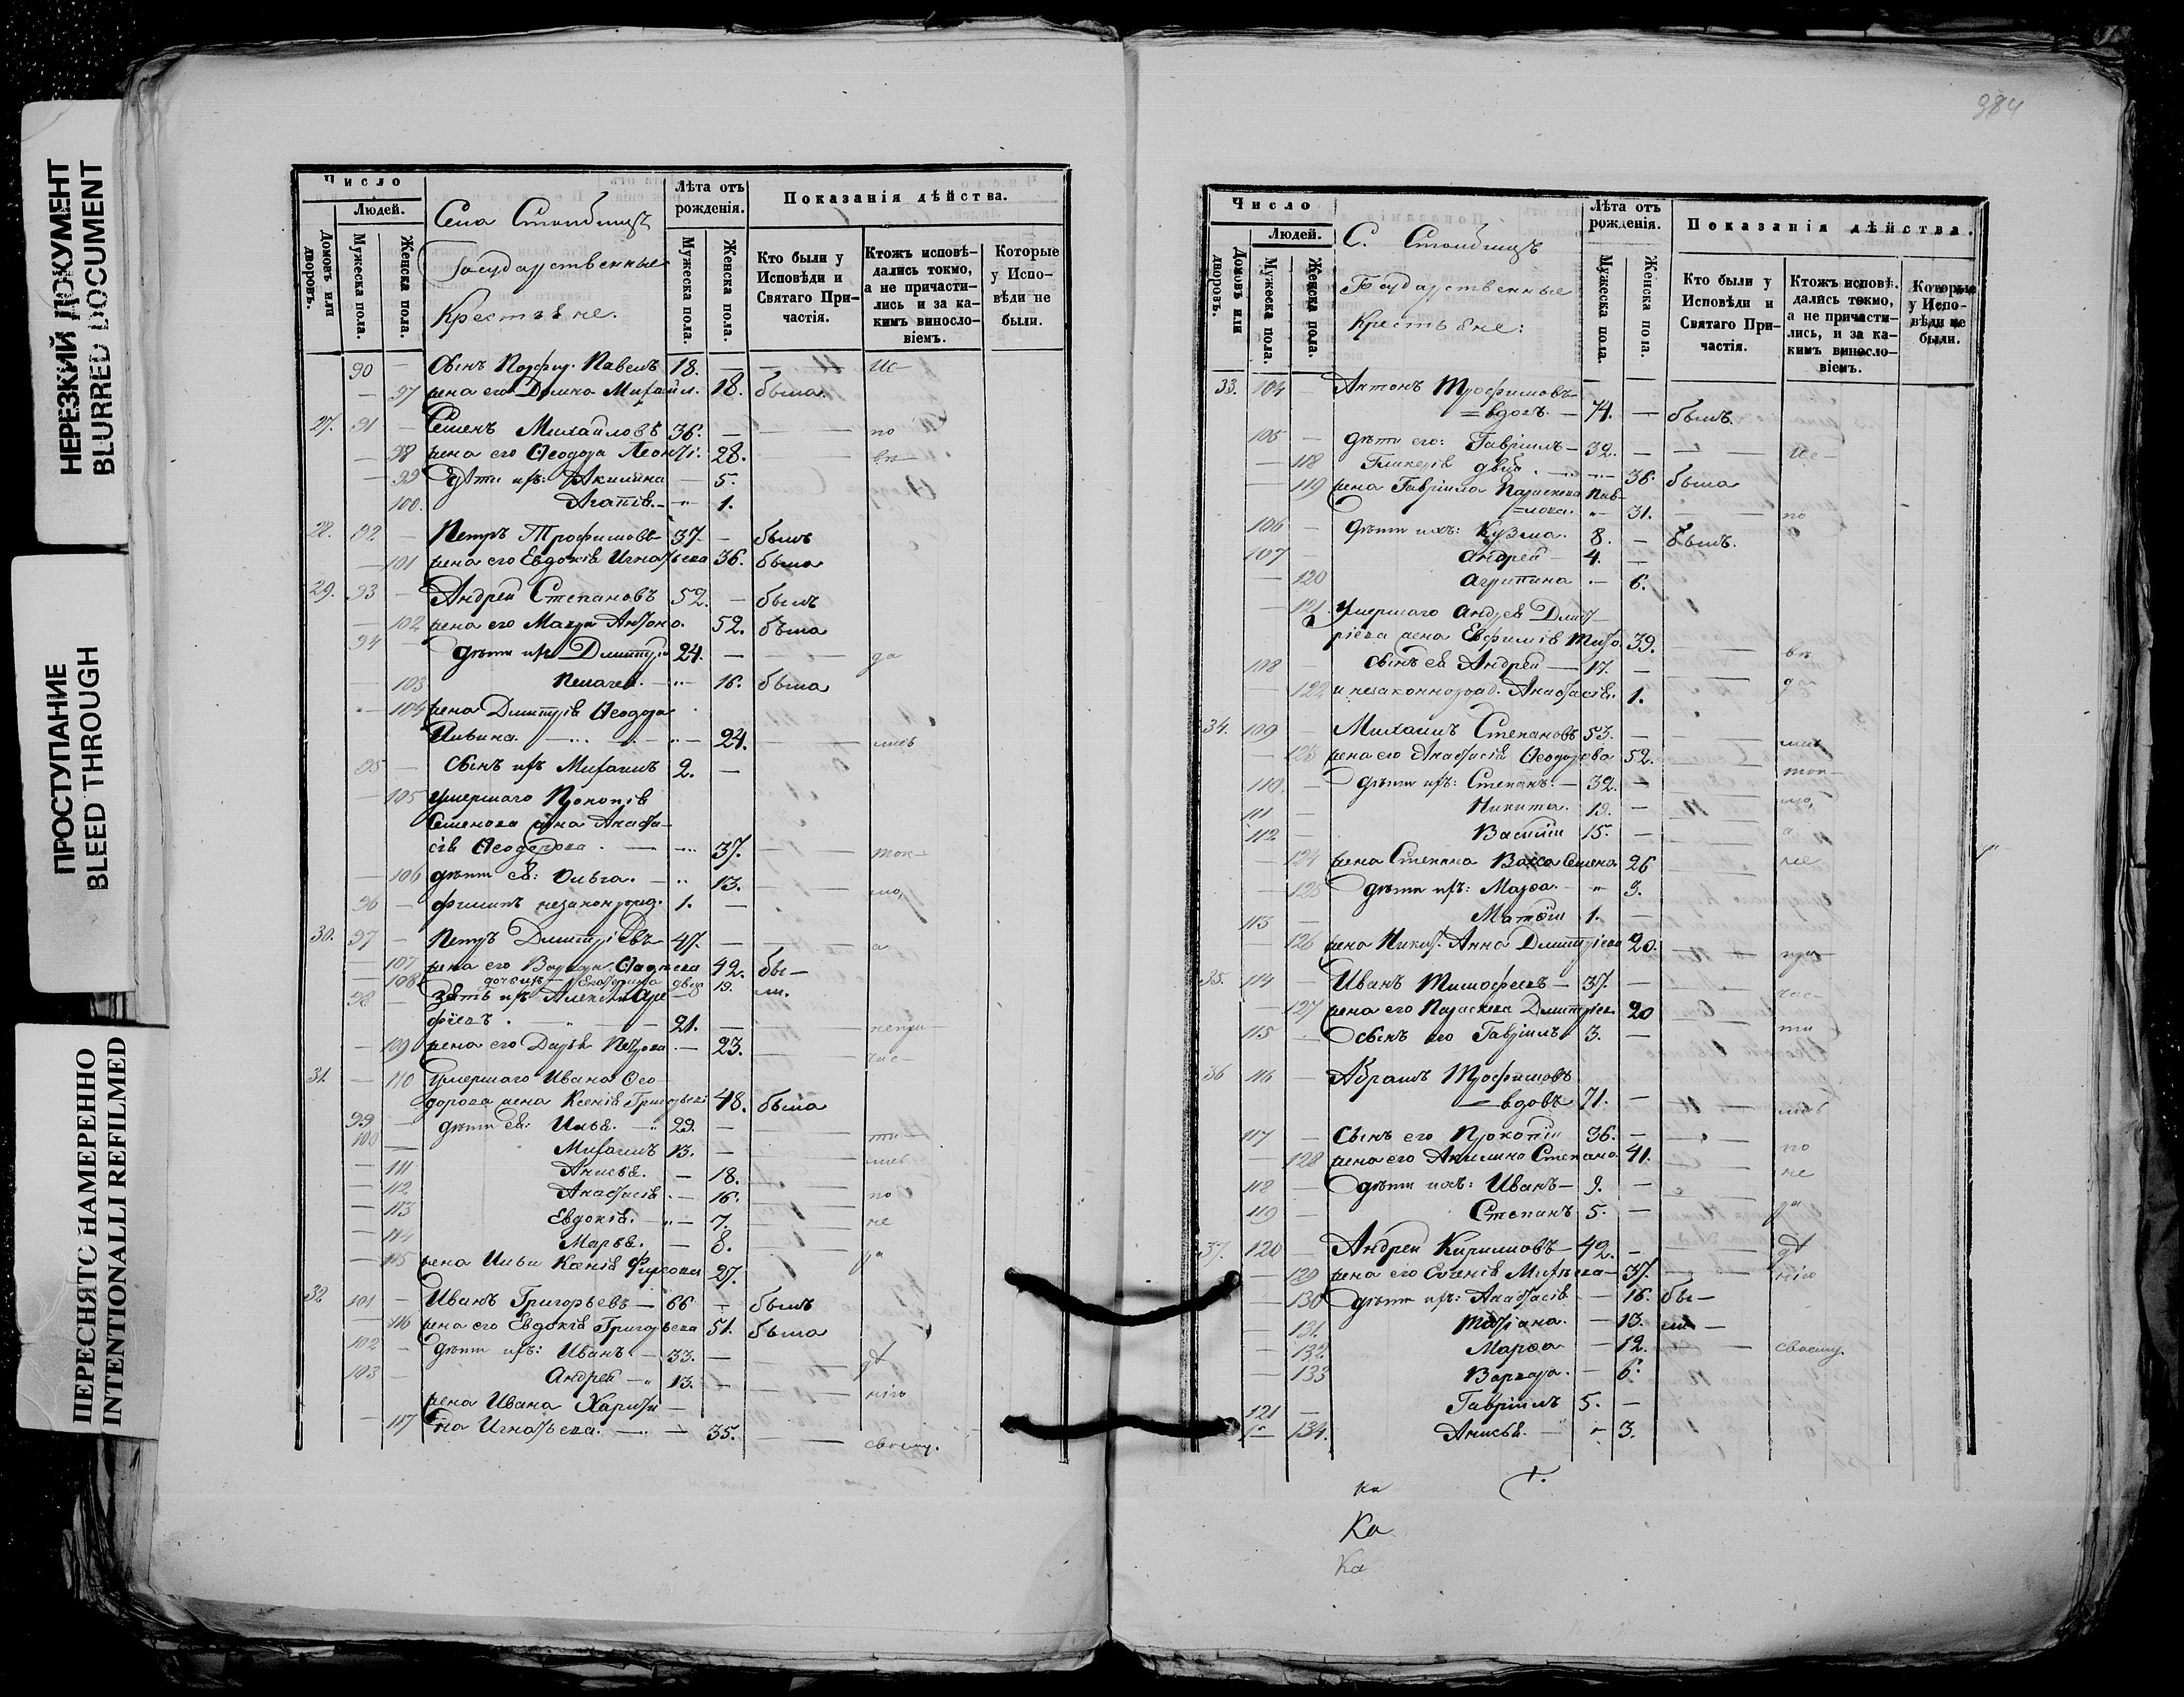 НЕРЕЗКИЙ ДОКУМЕНТ
BLURRED DOCUMENT
ПРОСТУПАНИЕ
BLEED THROUGH
ПЕРЕСНЯТО НАМЕРЕННО
INTENTIONALLI REFILMED
Число
Людей.
Домовъ или дворовъ.
Мужеска пола.
Женска пола.
Села Столбищъ
Государственные
Крестьяне.
Лѣта отъ рожденія.
Мужеска пола.
Женска пола.
Показанія дѣйства.
Кто были у Исповѣди и Святаго При-частія.
Ктожъ исповѣ-дались токмо, а не причасти-лись и за ка-кимъ винослo-віемъ.
Которые у Испо-вѣди не были.
90 — Сынъ Павелъ 18. — — Ис-
— 97 жена его Домна Михайл. 18. была.
27. 91 — Семенъ Михайловъ 36. — — по
— 98 жена его Ѳеодора Леонт. 28. — вѣ-
— 99 Дѣти ихъ: Акилина — 5.
100. Агапія. — 1.
28. 92 — Петръ Трофимовъ 37. — былъ
— 101 жена его Евдокія Игнатьева 36. была
29. 93 — Андрей Степановъ 52. — былъ
— 102 жена его Антоно. 52. была
94 — дѣти ихъ Димитрій 24. — — да
— 103 Пелагея. — 16. была
— 104 жена Димитрія Ѳеодора
Ильина. — 24. — лись
95 — Сынъ ихъ Михаилъ 2. —
— 105 умершаго Прокопія
Семенова жена Анаста-
сія Ѳеодорова. — 37. — ток-
— 106 дѣти ея: Ольга. — 13. — мо,
96 — Филиппъ незаконнорожд. 1. —
30. 97 — Петръ Димитріевъ 47. — — а
— 107 жена его Варвара 42. бы-
108 дочь ихъ Екатерина двца 19. ли.
98 — Зять ихъ Алексѣй Аре-
фіевъ. — 21. — — непри-
— 109 жена его Дарья Петрова. — 23. — час-
31. — 110 Умершаго Ивана Ѳео-
дорова жена Ксенія Григорьева 48. была
99 — дѣти ея: Илья. — 29. —
100 — Михаилъ 13. — — ти-
— 111 Анисья. — 18. — лись
— 112 Анастасія. — 16. — по
— 113 Евдокія. — 7. — не
— 114 Марья. — 8.
— 115 жена Ильи Ксенія Фирсова 27. — ра
32 101 — Иванъ Григорьевъ — 66 — былъ
— 116 жена его Евдокія Григорьева 51. была
102 — дѣти ихъ: Иванъ. — 33. — — дѣ
103 — Андрей — 13. — — нію
жена Ивана Харити-
— 117 на Игнатьева. — 35. — своему.
984
Число
Людей.
Домовъ или дворовъ.
Мужеска пола.
Женска пола.
С. Столбищъ
Государственные
Крестьяне:
Лѣта отъ рожденія.
Мужеска пола.
Женска пола.
Показанія дѣйства.
Кто были у Исповѣди и Святаго При-частія.
Ктожъ исповѣ-дались токмо, а не причасти-лись, и за ка-кимъ винослo-віемъ.
Которые у Испо-вѣди не были.
33. 104 — Антонъ Трофимовъ
вдовъ. — 74. — былъ.
105 — дѣти его: Гавріилъ — 32. — — Ис-
— 118 Гликерія двца. — 36. была
— 119 жена Гавріила Параскева Пав-
лова. — 31. — по
106 — Дѣти ихъ: Кузма. 8. — былъ.
107 — Андрей — 4. —
— 120 Агрипина — 6.
— 121. умершаго Андрея Дмит-
ріева жена Евфимія 39. — вѣ
108 — сынъ ея Андрей — 17. —
— 122 и незаконнорожд. Анастасія. 1. да
34. 109 — Михаилъ Степановъ 53. — лись
— 123 жена его Анастасія Ѳеодорова 52. — ток-
110. — Дѣти ихъ: Степанъ. — 32. — мо,
111 — Никита. 19. —
112 — Василій 15. — а
— 124 жена Степана Васса Семено. 26 не
— 125 Дѣти ихъ: Марѳа. — 3.
113 — Матѳій 1. —
— 126 жена Никит. Анна Димитріева 20. при-
35. 114 — Иванъ Тимофеевъ — 37. — час-
— 127 жена его Параскева Димитріев. 20
115 — Сынъ его Гавріилъ 3. — ти
36 116 — Абрамъ Трофимовъ
вдовъ 71. — лись
117 — Сынъ его Прокопій 36. — по
— 128 жена его Акилина Степано. 41. не
118 — Дѣти ихъ: Иванъ — 9. —
119 — Степанъ 5. — ра
37. 120 — Андрей Кириловъ — 42. — дѣ
— 129 жена его Михѣева — 37. — нію
— 130 Дѣти ихъ: Анастасія — 16. бы-
— 131. Татіана. — 13. ли —
— 132 Марѳа — 12. — своему.
— 133 Варвара. — 6.
121 — Гавріилъ 5. —
— 134. Анисья. — 3.
Ка
Ка
Ка